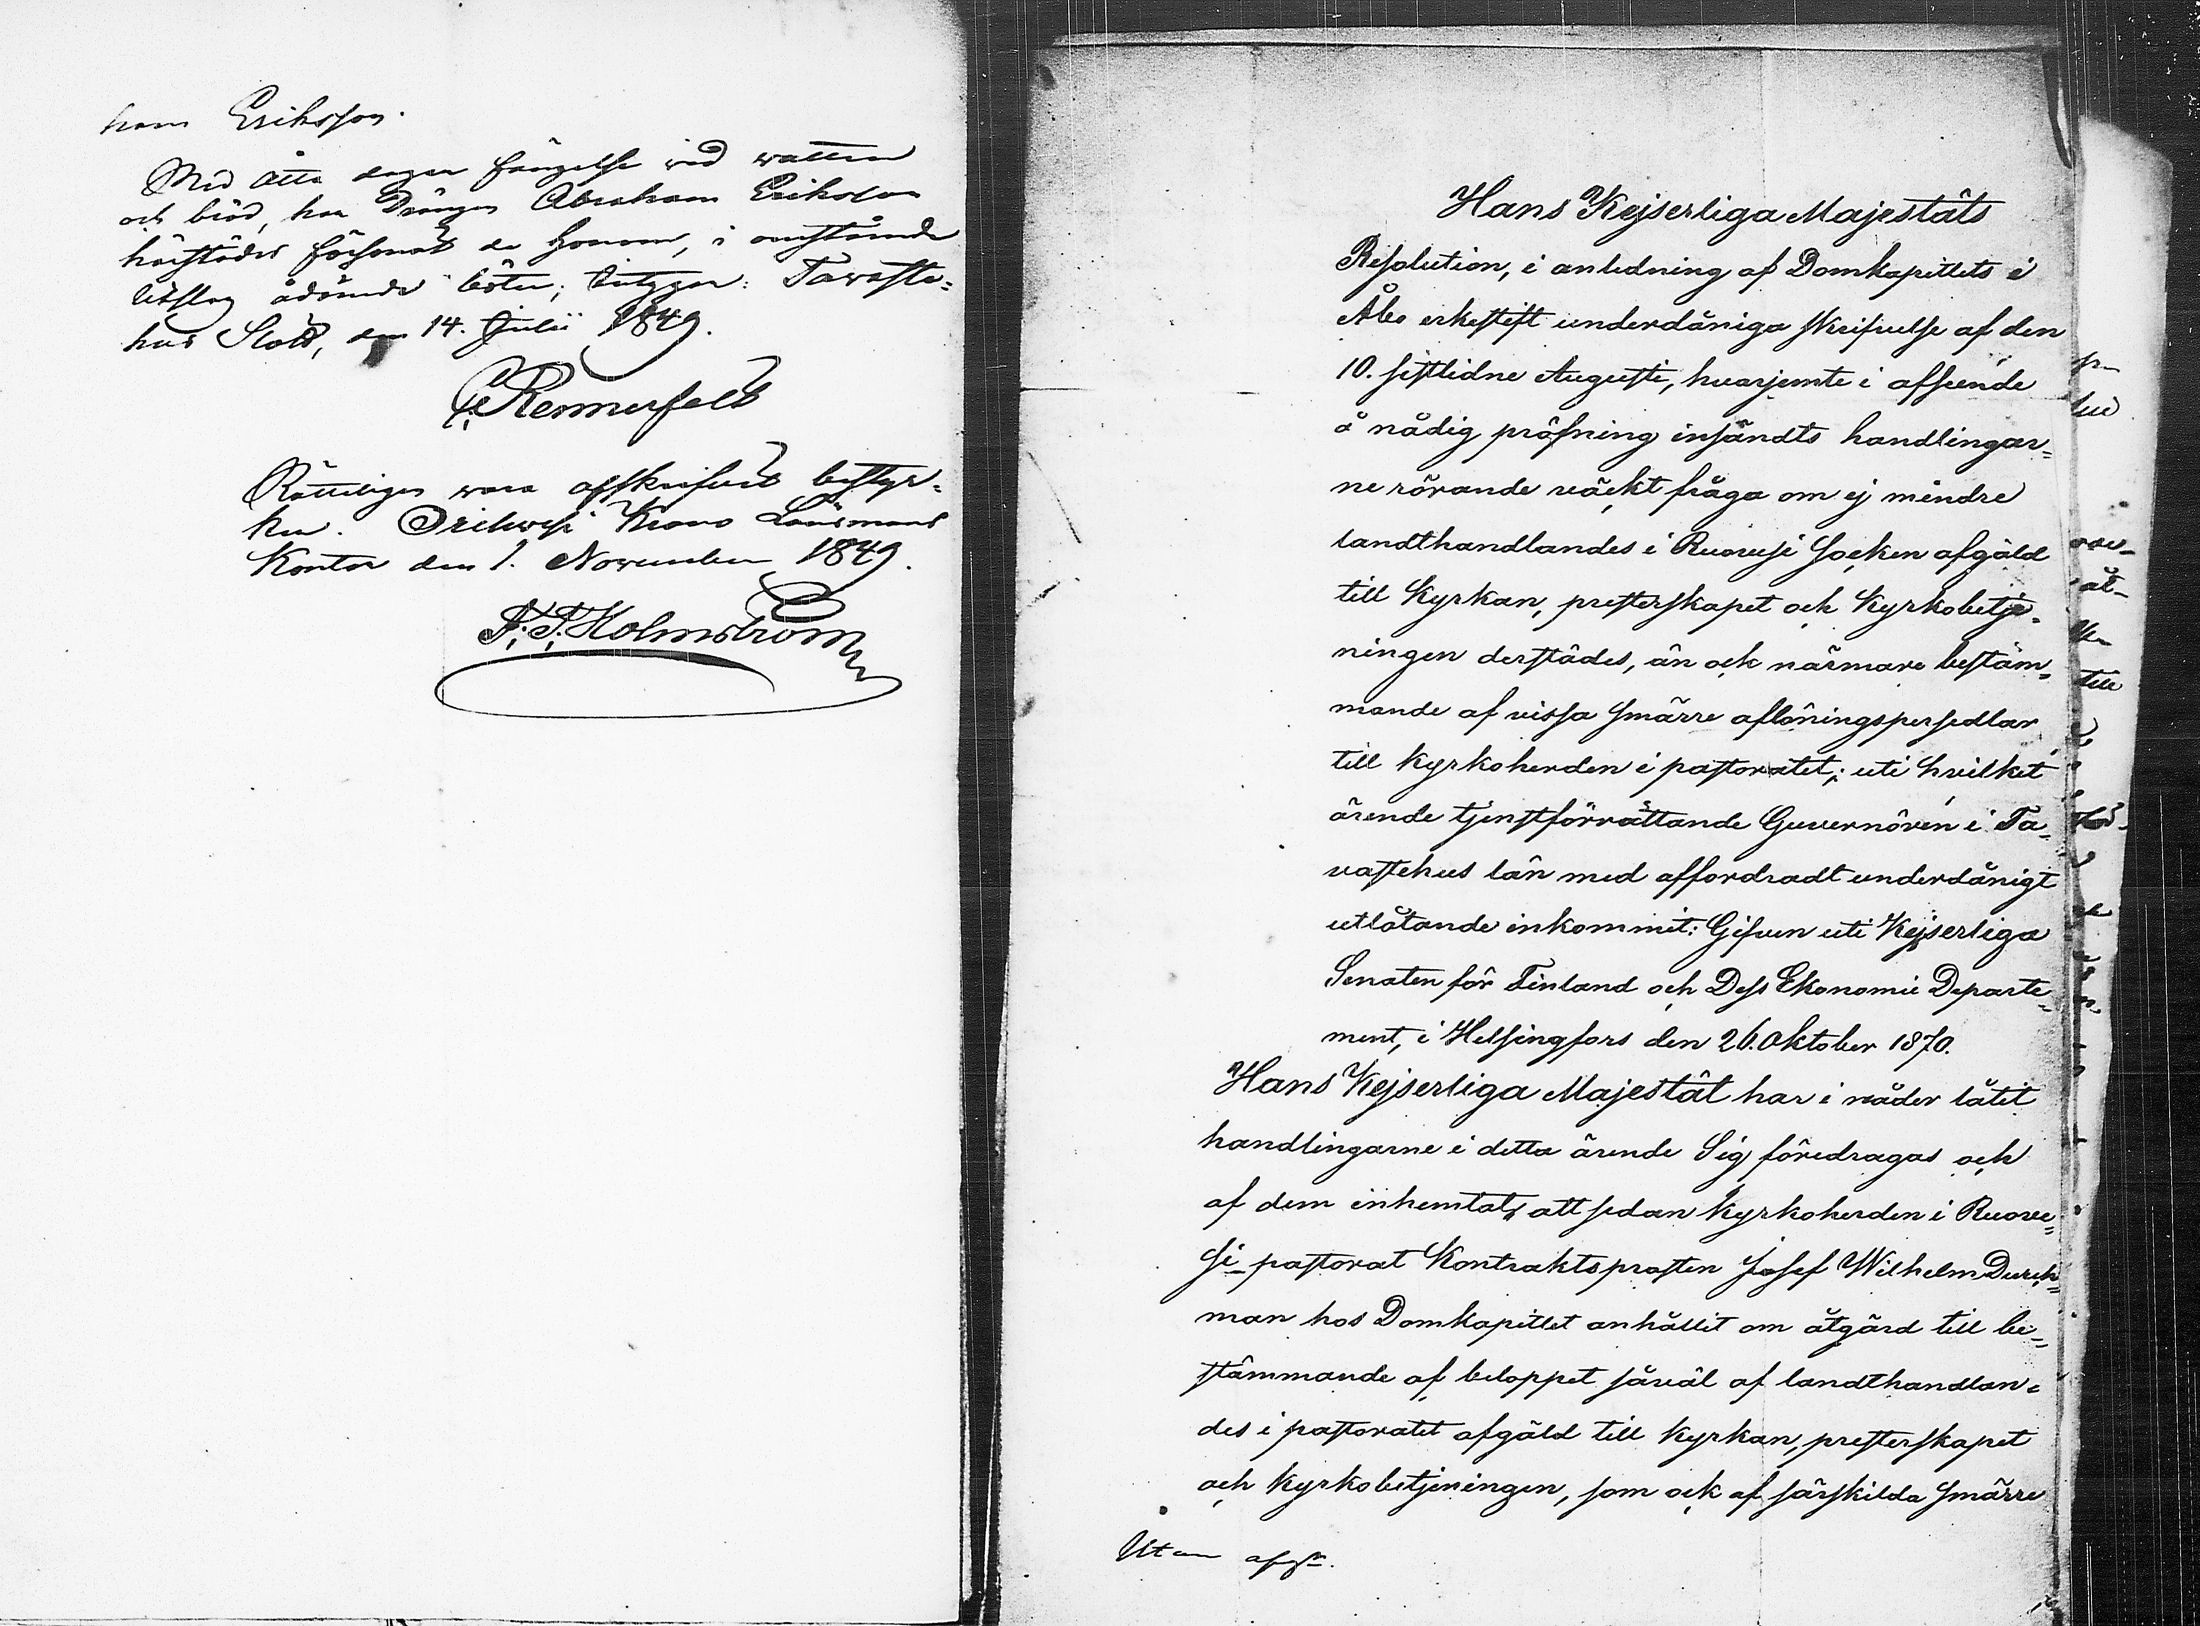 ham Eriksson.
Med åtta dagar fängelse vid watten
och bröd, har Drängen Abraham Eriksson
härstädes försonat de honom, i omstående
Utslag ådömde böter; betygar: Tawaste=
hus Slott, den 14. Julii 1849.
C: Rennerfelt
Rätteligen wara afskrifwet bestyr=
ker. Orihwesi Krono Länsmans
Kontor den 1. November 1849.
F. F. Holmström
Hans Kejserliga Majestäts
Resolution, i anledning af Domkapitlets i
Åbo erkestift underdåniga skrifvelse af den
10. sistlidne Augusti, hvarjemte i afseende
å nådig pröfning insändts handlingar=
ne rörande väckt fråga om ej mindre
landthandlandes i Ruovesi Socken afgäld
till Kyrkan, presterskapet och Kyrkobetje=
ningen derstädes, än ock närmare bestäm=
mande af vissa smärre aflöningspersedlar
till Kyrkoherden i pastoratet; uti hvilket
ärende tjenstförrättande Guvernören i Ta=
vastehus län med affordradt underdånigt
utlåtande inkommit: Gifven uti Kejserliga
Senaten för Finland och Dess Ekonomie Departe=
ment, i Helsingfors den 26. Oktober 1870.
Hans Kejserliga Majestät har i nåder låtit
handlingarne i detta ärende Sig föredragas och
af dem inhemtat, att sedan Kyrkoherden i Ruove=
si pastorat Kontraktsprosten Josef Wilhelm Durch=
man hos Domkapitlet anhållit om åtgärd till be=
stämmande af beloppet såväl af landthandlan=
des i pastoratet afgäld till Kyrkan, presterskapet
och Kyrkobetjeningen, som ock af särskilda smärre
Utan afgft.